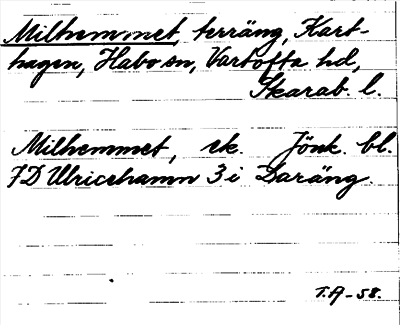 Milhemmet, terräng, Kart-
hagen, Habo sn, Vartofta hd,
Skarab. l.
Milhemmet, ek. Jönk. bl.
7D Ulricehamn 3 i Daräng
T.A -58.